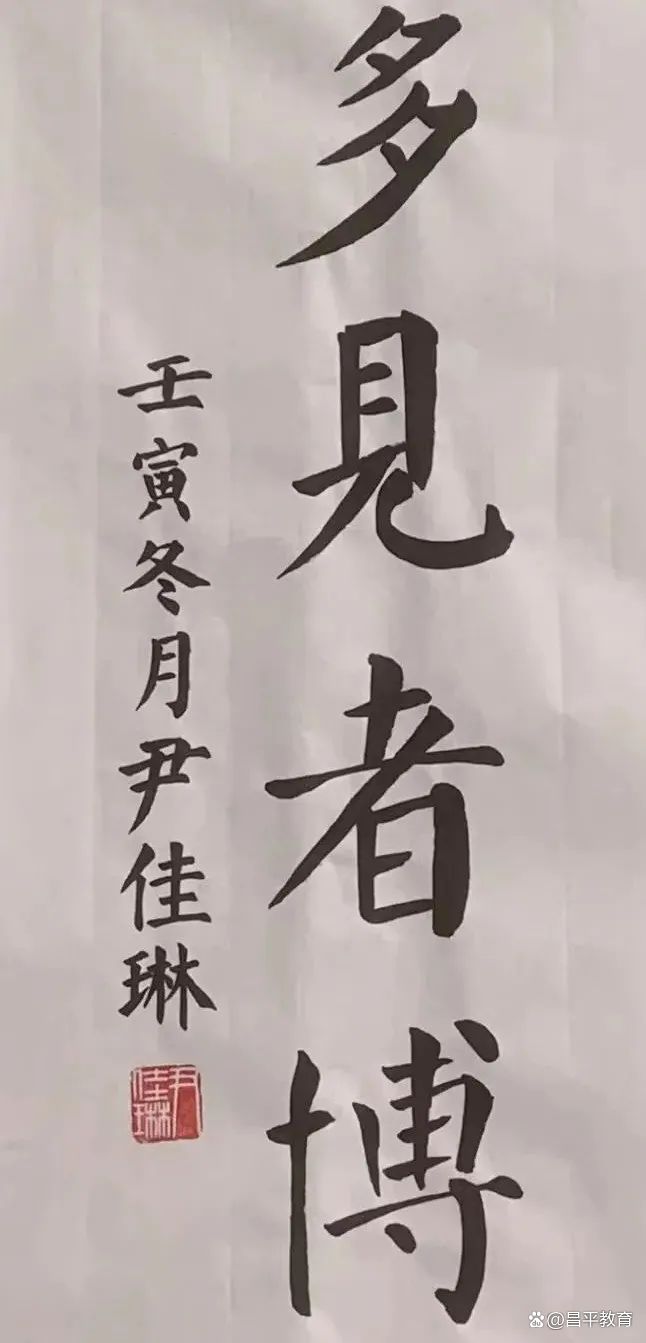 多見者博
壬寅冬月尹佳琳
尹佳琳
@昌平教育